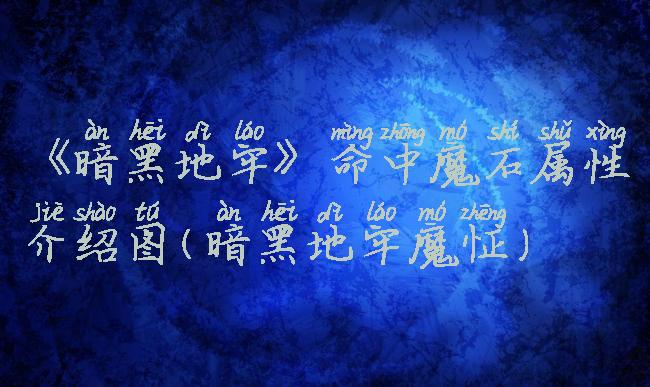 àn hēi dì láo mìng zhōng mó shí shǔ xìng
《暗黑地牢》命中魔石属性
jiè shào tú àn hēi dì láo mó zhēng
介绍图(暗黑地牢魔怔)